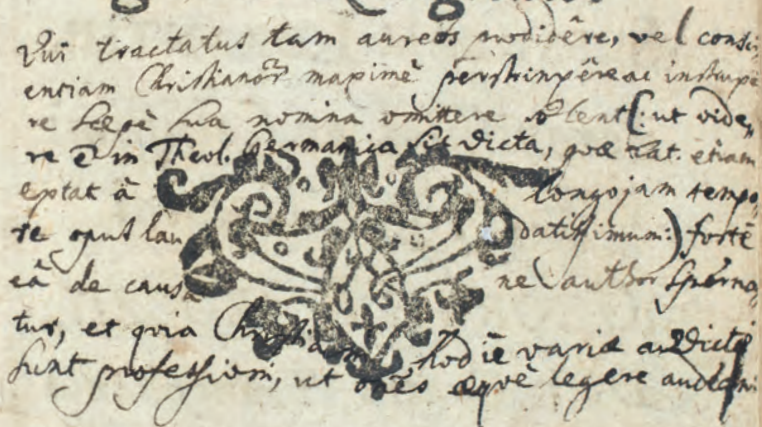 Qui tractatus tam aureos prodidêre, vel consci-
entiam Christianor maximè perstrinxêre ac instruxê
re sæpè sua nomina omittere solent (: ut vide-
re ē in Theol. Germanica sic dicta, quæ Lat. etiam
extat à longo jam tempo-
re opus laudatissimum :) fortè
eâ de causa ne author sperna-
tur, et quia Christiani hodie variæ addicti
sunt professioni, ut oēs æquè legere audeant